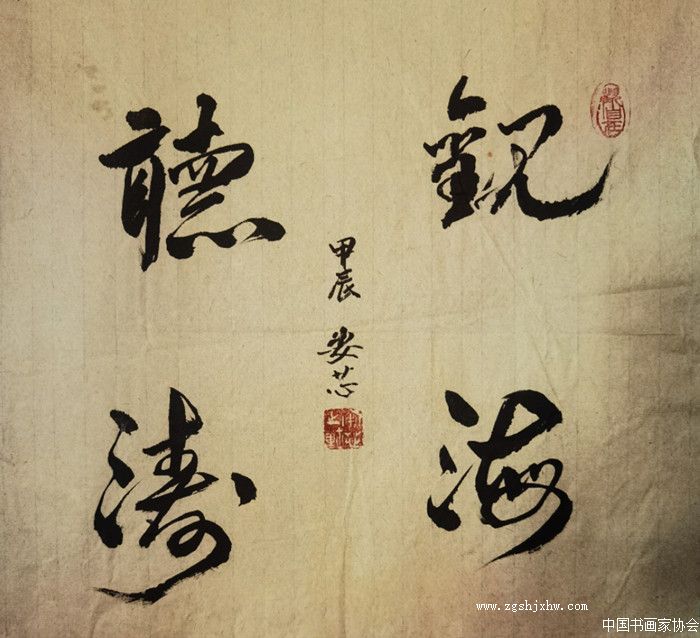 觀海
聽濤
甲辰 娄芯
www.zgshjxhw.com
中国书画家协会